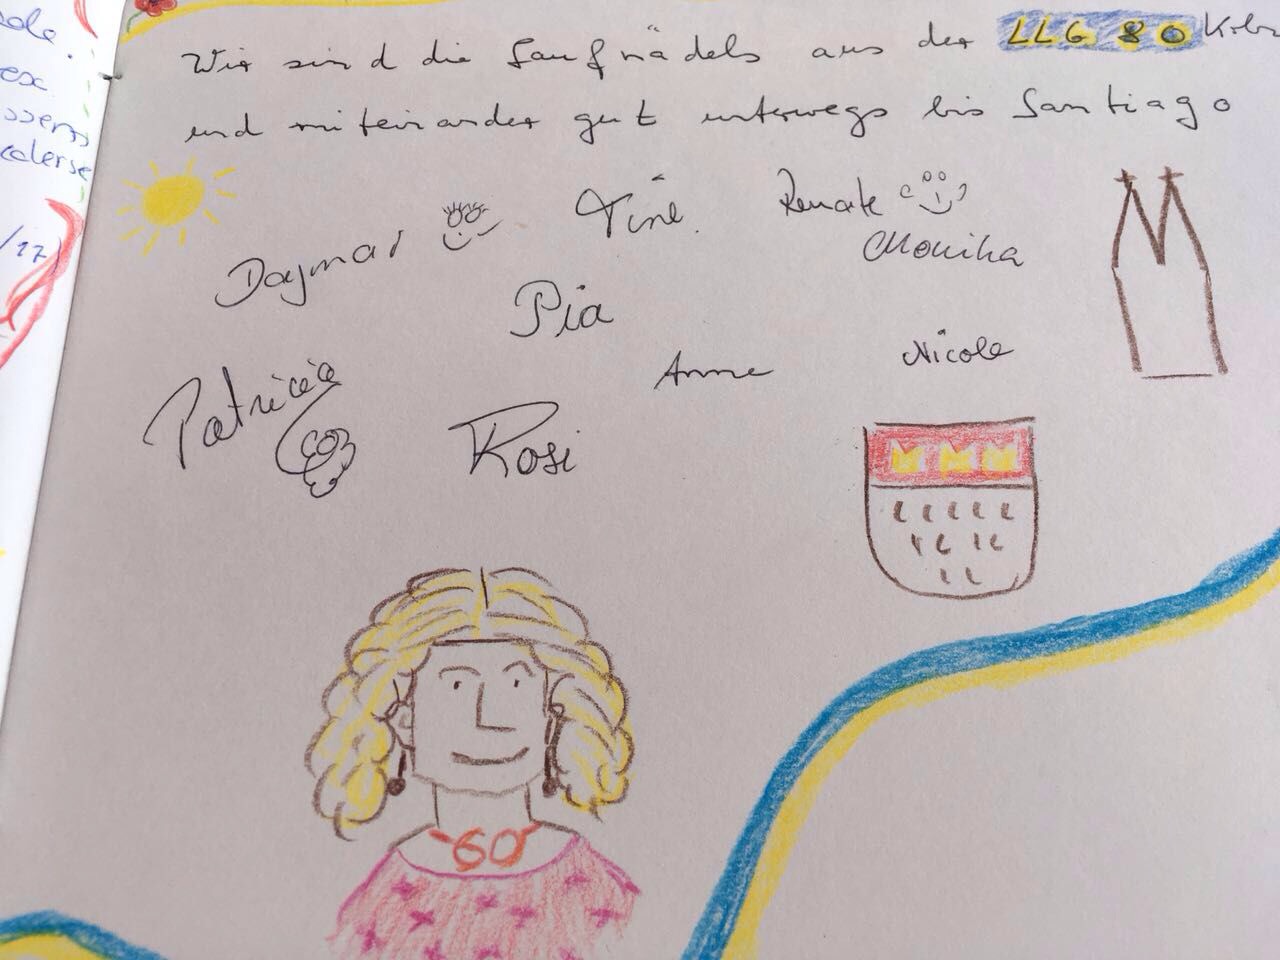 Wir sind die Laufmädels aus der LLG 80 Köln
und miteinander gut unterwegs bis Santiago
Dagmar
Tine
Renate
Monika
Pia
Anne
Nicole
Patricia
Rosi
60
/17)